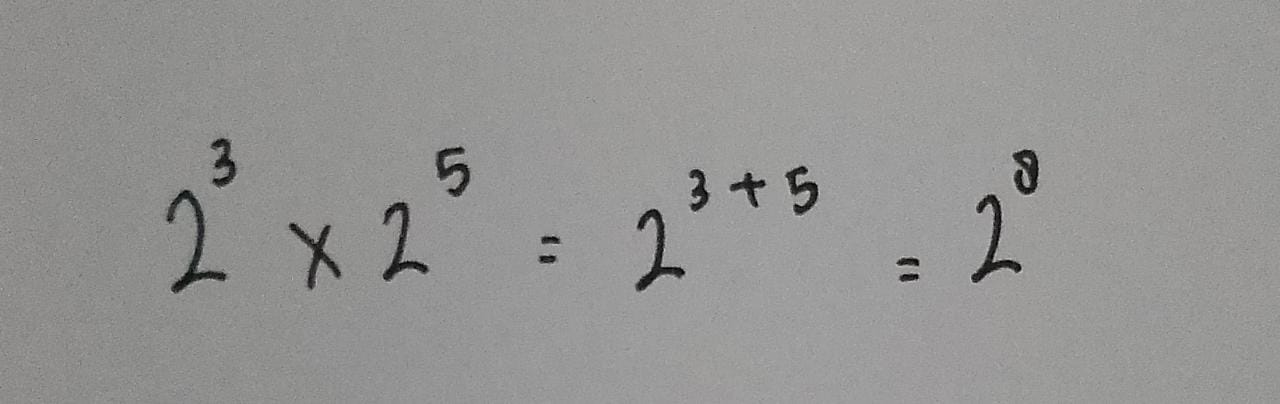 2³ × 2⁵ = 2³⁺⁵ = 2⁸